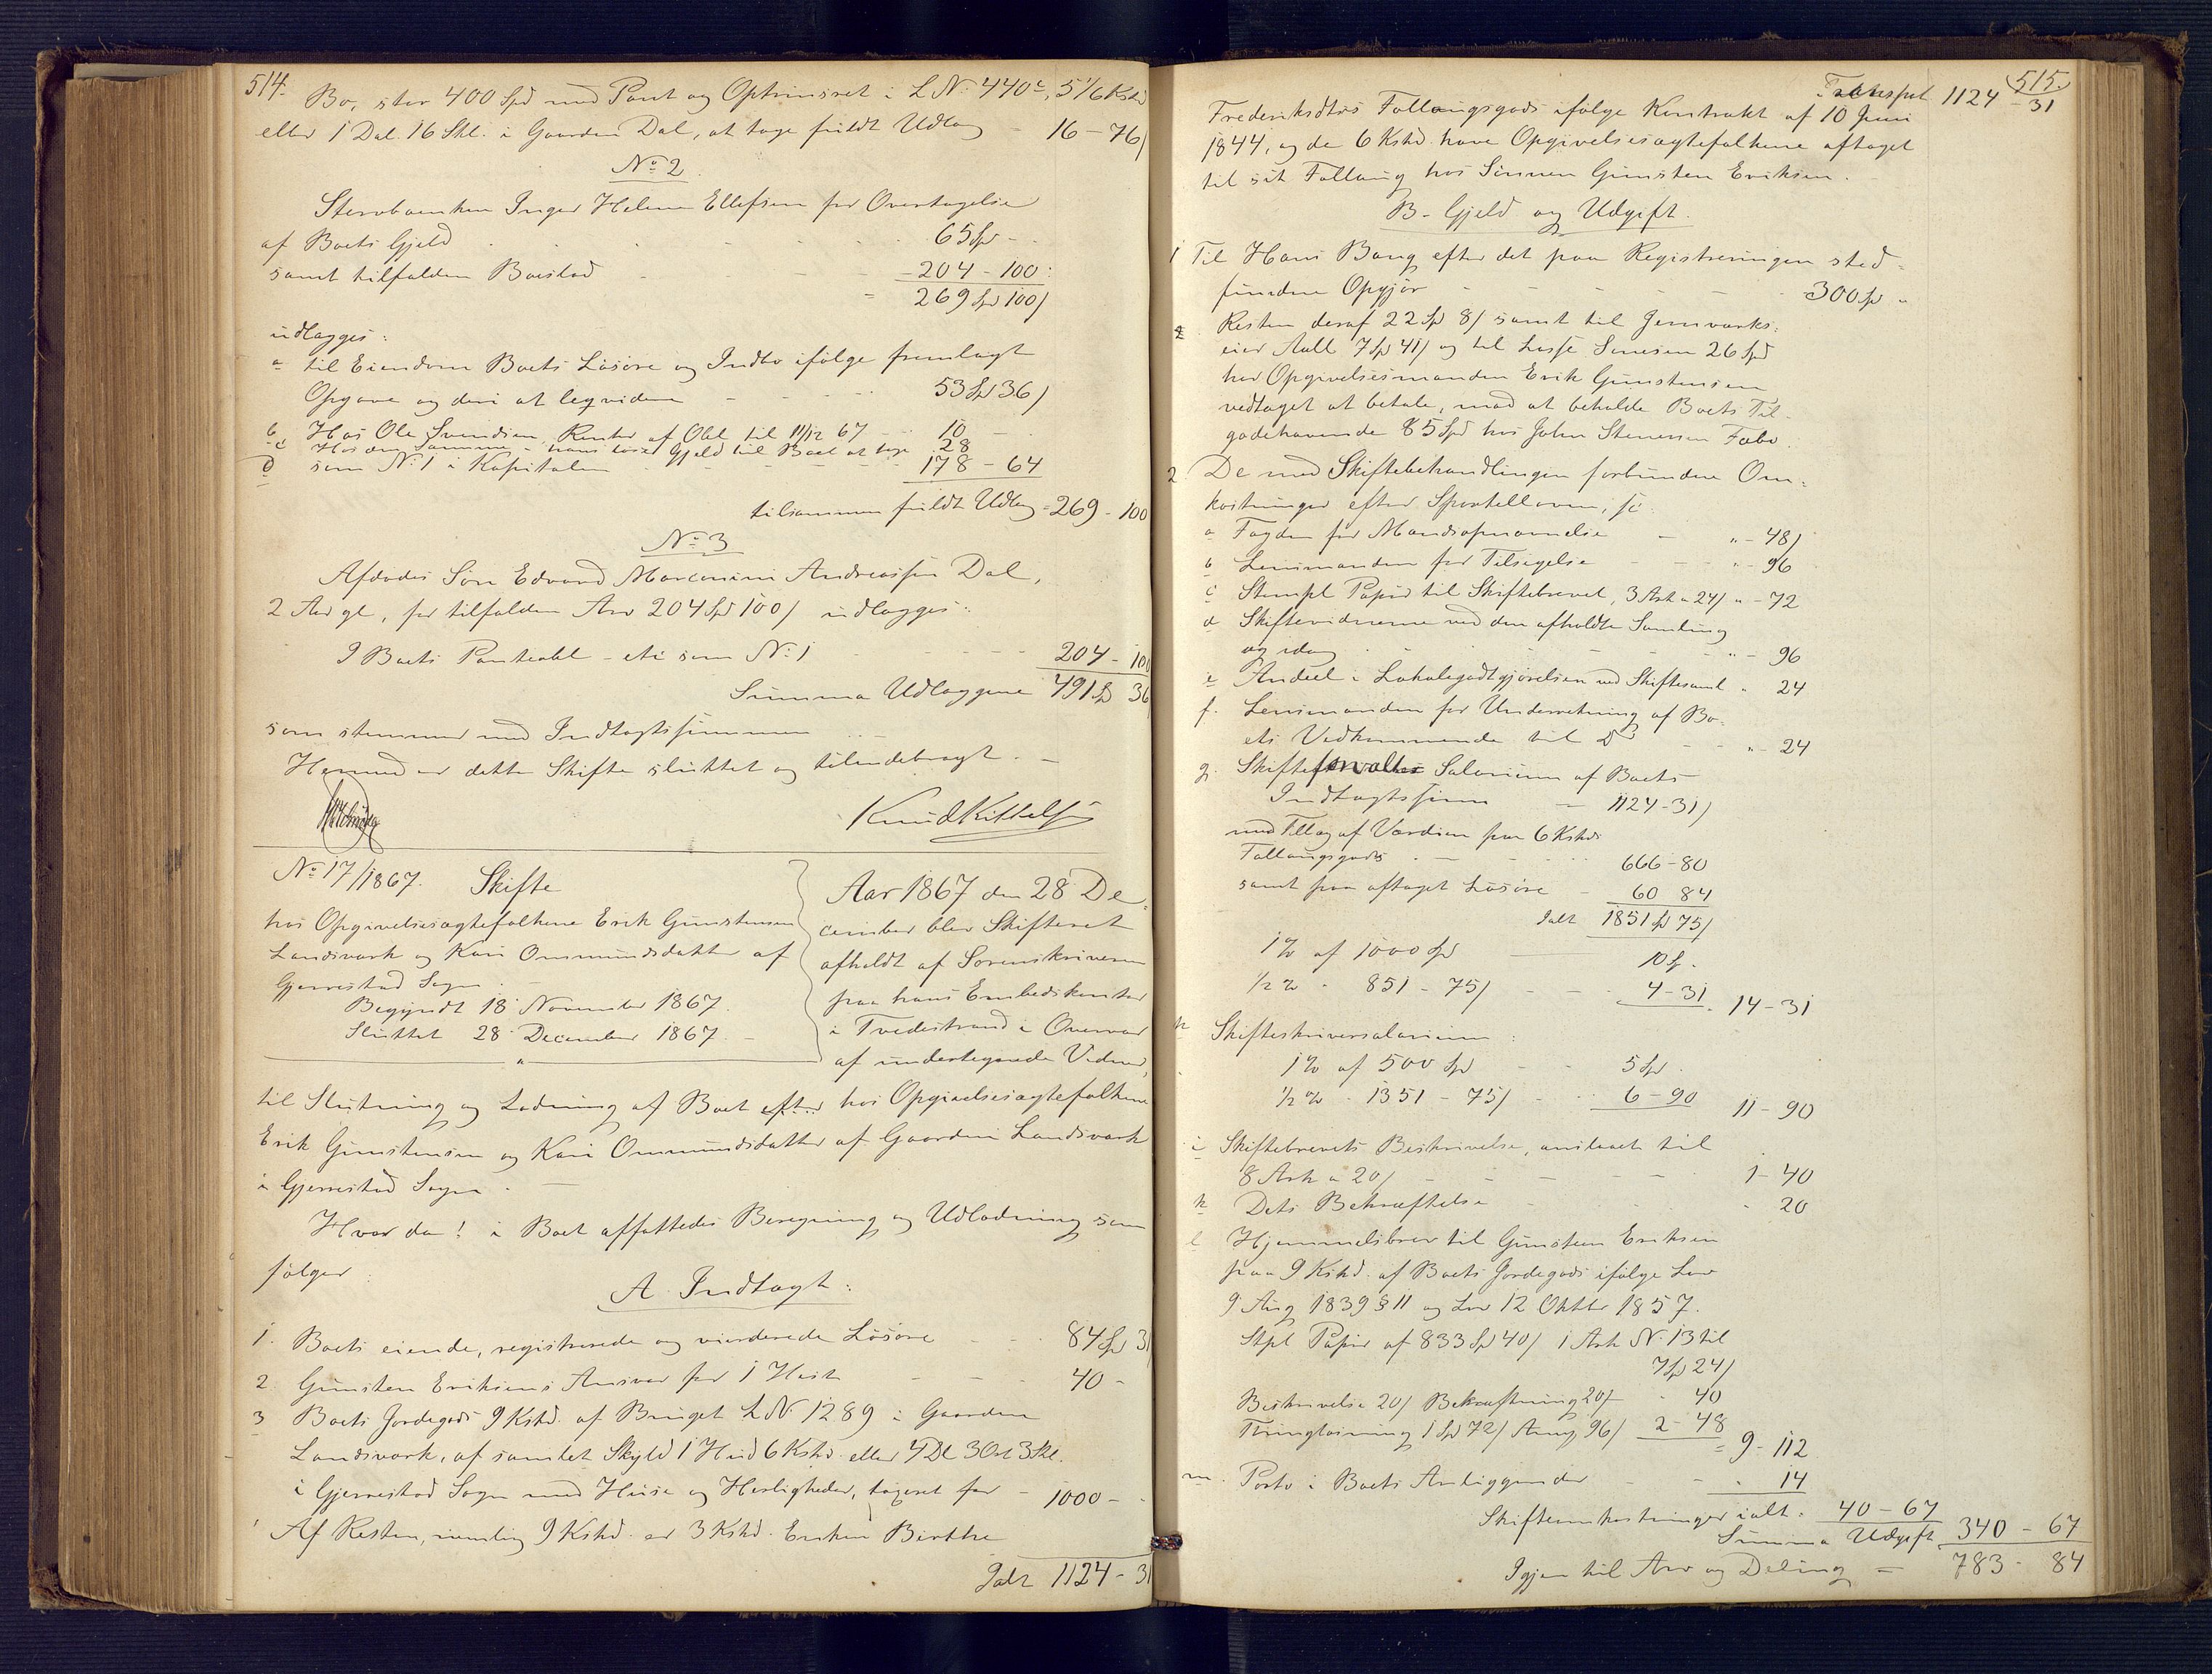 514.
Bo, stor 400 Spd med Pant og Optrinsret i L N: 440c, 5 1/6 Kshd
eller 1 Dal. 16 Skl. i Gaarden Dal, at tage fuldt Udlæg - 16 - 76/
No 2
Stervboenken Inger Helene Ellefsen for Overtagelse
af Boets Gjeld 65 Spd -
samt tilfalden Boeslod - 204 - 100
= 269 Spd 100/
udlægges:
a til Eiendom Boets Løsøre og Indbo ifølge fremlagt
Opgave og deri at leqvidere 53 Spd 36/
b Hos Ole Svendsen, Renter af Obl. til 11/12 67 10 -
c Hos den samme hans løse Gjeld til Boet at tage 28
d som N: 1 i Kapitalen 178 - 64
tilsammen fuldt Udlæg = 269 - 100
No 3
Afdødes Søn Edvard Marconini Andreassen Dal,
2 Aar gl., for tilfalden Arv 204 Spd 100/ udlægges:
I Boets Panteobl - etc som N: 1 204 - 100
Summa Udlæggene 491 Spd 36
som stemmer med Indtægtssummen
Hermed er dette Skifte sluttet og tilendebragt. -
Knud Kittelsen
No 17/1867. Skifte
hos Opgivelsesægtefolkene Erik Gunstensen
Landsverk og Kari Ommundsdatter af
Gjerrestad Sogn
Begyndt 18 November 1867.
Sluttet 28 December 1867. -
Aar 1867 den 28 De-
cember blev Skifteret
afholdt af Sorenskriveren
paa hans Embedskontor
i Tvedestrand i Overvær
af undertegnede Vidner,
til Slutning og Lodning af Boet efter hos Opgivelsesægtefolkene
Erik Gunstensen og Kari Ommundsdatter af Gaarden Landsverk
i Gjerrestad Sogn. -
Hvor da! i Boet affattedes Beregning og Udlodning som
følger:
A Indtægt:
1. Boets eiende, registrerede og vurderede Løsøre 84 Spd 31
2 Gunsten Eriksens Ansvar for 1 Hest 40 -
3 Boets Jordegods 9 Kshd. af Bruget L N: 1289 i Gaarden
Landsverk, af samlet Skyld 1 Hud 6 Kshd. eller 4 Dl 3 Ort 3 Skl.
i Gjerrestad Sogn med Huse og Herligheder, taxeret for - 1000 -
Af Resten, nemlig 9 Kshd. er 3 Kshd. Enken Birthe
Ialt 1124 - 31
515.
Transport 1124 - 31
Frederiksdtrs Føllaugsgods ifølge Kontrakt af 10 Juni
1844, og de 6 Kshd. have Opgivelsesægtefolkene aftaget
til sit Føllaug hos Sønnen Gunsten Eriksen.
B- Gjeld og Udgift.
1 Til Hans Bang efter det paa Registreringen sted-
fundne Opgjør 300 Sp "
Resten deraf 22 Spd 8/ samt til Jernværks-
eier Aall 7 Spd 41/ og til Lasse Senesen 26 Spd
har Opgivelsesmanden Erik Gunstensen
vedtaget at betale, mod at beholde Boets Til-
godehavende 85 Spd hos John Stenersen Fæbo.
2 De med Skiftebehandlingen forbundne Om-
kostninger efter Sportelloven, s:
a Fogden for Mandsopnævnelse " - 48/
b Lensmanden for Tilsigelse " - 96
c Stempl. Papir til Skiftebrevet, 3 Ark a 24/ " - 72
d Skiftevidnerne ved den afholdte Samling
og idag " - 96
e Andeel i Lokalegodtgjørelsen ved Skiftesaml " 24
f. Lensmanden for Underretning af Bo-
ets Vedkommende til Do " - 24
g. Skifteforvalter Salarium af Boets
Indtægtssum - 1124 - 31/
med Tillæg af Værdien paa 6 Kshds
Føllaugsgods 666 - 80
samt paa aftaget Løsøre - 60 84
Ialt 1851 Spd 75/
1% af 1000 Spd 10 Sp.
1/2 % - 851 - 75/ 4 - 31. 14 - 31
h Skifteskriversalarium:
1% af 500 Spd 5 Spd.
1/2 % - 1351 - 75/ 6 - 90 11 - 90
i Skiftebrevets Beskrivelse, anslaaet til
8 Ark a 20/ 1 - 40
k Dets Bekræftelse " 20
l Hjemmelsbrev til Gunsten Eriksen
paa 9 Kshd. af Boets Jordegods ifølge Lov
9 Aug 1839 § 11 og Lov 12 Oktbr 1857.
Stpl Papir af 833 Spd 40/ 1 Ark N: 13 til
7 Spd 24/
Beskrivelse 20/ Bekræftning 20/ - 40
Thinglæsning 1 Spd 72/ Anm. 96/ 2 - 48
= 9 - 112
m. Porto i Boets Anliggender " 14
Skifteomkostninger ialt. 40 - 67
Summa Udgift 340 - 67
Igjen til Arv og Deling = 783 - 84